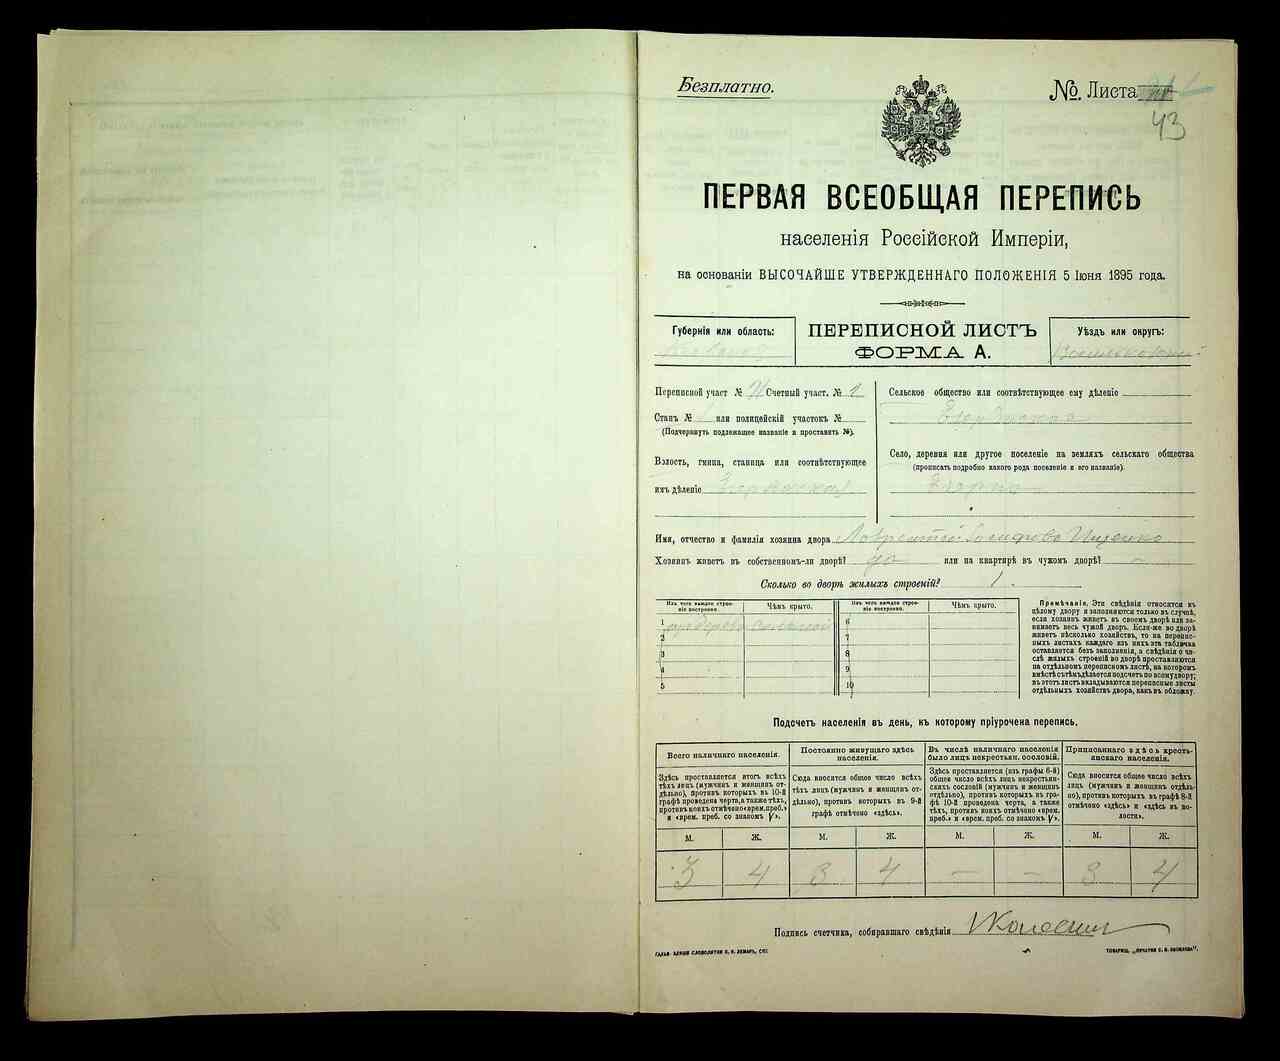 Безплатно.
№ Листа
43
ПЕРВАЯ ВСЕОБЩАЯ ПЕРЕПИСЬ
населенія Россійской Имперіи,
на основаніи ВЫСОЧАЙШЕ УТВЕРЖДЕННАГО ПОЛОЖЕНІЯ 5 Іюня 1895 года.
Губернія или область:
ПЕРЕПИСНОЙ ЛИСТЪ
ФОРМА А.
Уѣздъ или округъ:
Переписной участ № Счетный участ. № 2
Станъ № или полицейскій участокъ №
(Подчеркнуть подлежащее названіе и проставить №).
Волость, гмина, станица или соотвѣтствующее
имъ дѣленіе
Сельское общество или соотвѣтствующее ему дѣленіе
Село, деревня или другое поселеніе на земляхъ сельскаго общества
(прописать подробно какого рода поселеніе и его названіе).
Имя, отчество и фамилія хозяина двора Ищенко
Хозяинъ живетъ въ собственномъ-ли дворѣ? да или на квартирѣ въ чужомъ дворѣ? —
Сколько во дворѣ жилыхъ строеній? 1.
Изъ чего каждое строеніе построено.
Чѣмъ крыто.
Изъ чего каждое строеніе построено.
Чѣмъ крыто.
1
2
3
4
5
6
7
8
9
10
Примѣчанія. Эти свѣдѣнія относятся къ
цѣлому двору и заполняются только въ случаѣ,
если хозяинъ живетъ въ своемъ дворѣ или за-
нимаетъ весь чужой дворъ. Если-же во дворѣ
живетъ нѣсколько хозяйствъ, то на перепис-
ныхъ листахъ каждаго изъ нихъ эта табличка
оставляется безъ заполненія, а свѣдѣнія о чи-
слѣ жилыхъ строеній во дворѣ проставляются
на отдѣльномъ переписномъ листѣ, на которомъ
вмѣстѣ съ тѣмъ дѣлается подсчетъ по всему двору;
въ этотъ листъ вкладываются переписные листы
отдѣльныхъ хозяйствъ двора, какъ въ обложку.
Подсчетъ населенія въ день, къ которому пріурочена перепись.
Всего наличнаго населенія.
Здѣсь проставляется итогъ всѣхъ
тѣхъ лицъ (мужчинъ и женщинъ от-
дѣльно), противъ которыхъ въ 10-й
графѣ проведена черта, а также тѣхъ,
противъ коихъ отмѣчено «врем. преб.»
и «врем. преб. со знакомъ V».
Постоянно живущаго здѣсь
населенія.
Сюда вносится общее число всѣхъ
тѣхъ лицъ (мужчинъ и женщинъ от-
дѣльно), противъ которыхъ въ 9-й
графѣ отмѣчено «здѣсь».
Въ числѣ наличнаго населенія
было лицъ некрестьян. сословій.
Здѣсь проставляется (изъ графы 6-й)
общее число всѣхъ лицъ некрестьян-
скихъ сословій (мужчинъ и женщинъ
отдѣльно), противъ которыхъ въ гра-
фѣ 10-й проведена черта, а также
тѣхъ, противъ коихъ отмѣчено «врем.
преб.» и «врем. преб. со знакомъ V».
Приписаннаго здѣсь кресть-
янскаго населенія.
Сюда вносится общее число всѣхъ
лицъ (мужчинъ и женщинъ отдѣль-
но), противъ которыхъ въ графѣ 8-й
отмѣчено «здѣсь» и «здѣсь въ во-
лости».
М. Ж. М. Ж. М. Ж. М. Ж.
3 4 3 4 — — 3 4
Подпись счетчика, собиравшаго свѣдѣнія